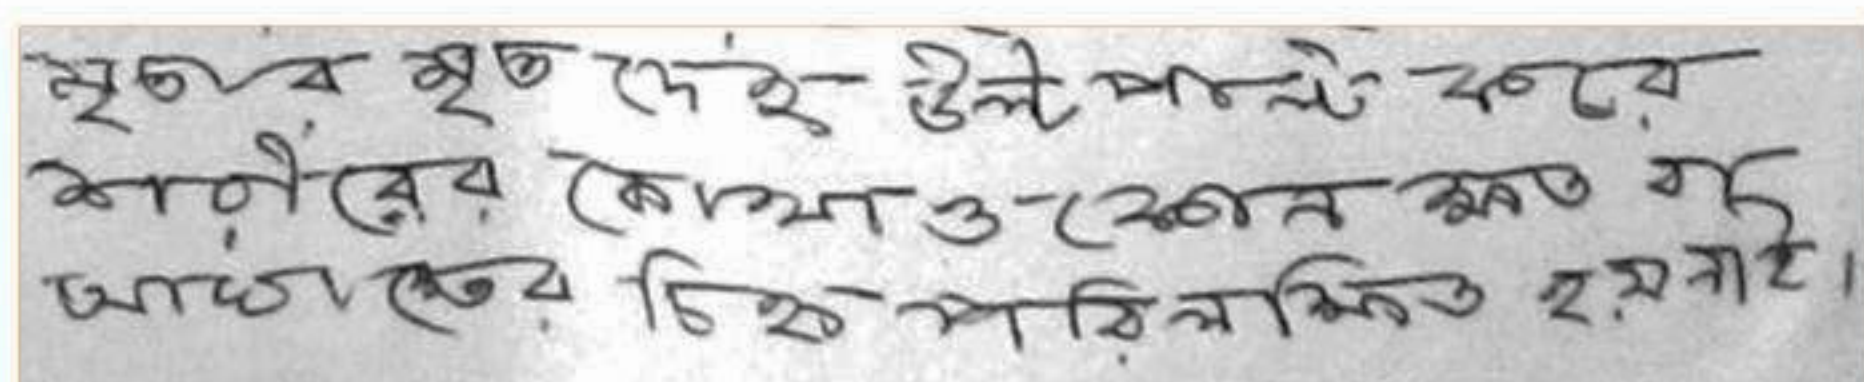 মৃতার মৃত দেহ উল্টে পাল্টে করে
শরীরের কোথাও কোন ক্ষত বা
আঘাতের চিহ্ন পরিলক্ষিত হয় নাই।